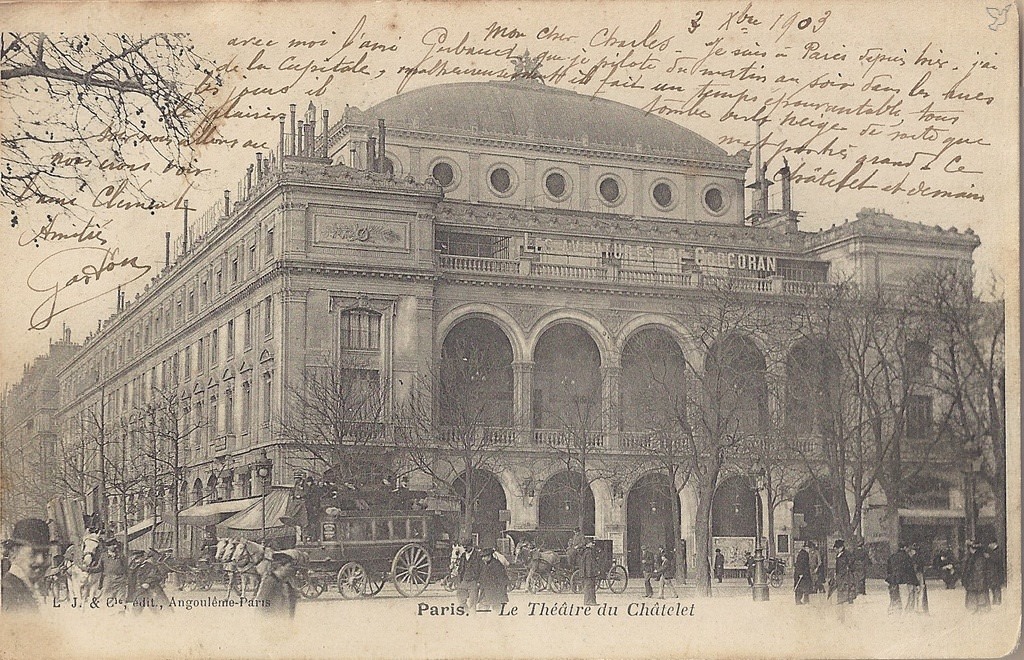 3 Xbre 1903
Mon cher Charles. Je suis à Paris depuis hier. j'ai
avec moi l'ami que je pilote du matin au soir dans les rues
de la Capitale, malheureusement il fait un temps épouvantable, tous
les jours il tombe de la neige de sorte que
plaisir grand. Ce
nous allons au Châtelet et demain
nous irons voir
Clément
Amitiés
Gaston
LES AVENTURES DE CORCORAN
L. J. & Cie, édit., Angoulême-Paris
Paris. — Le Théâtre du Châtelet